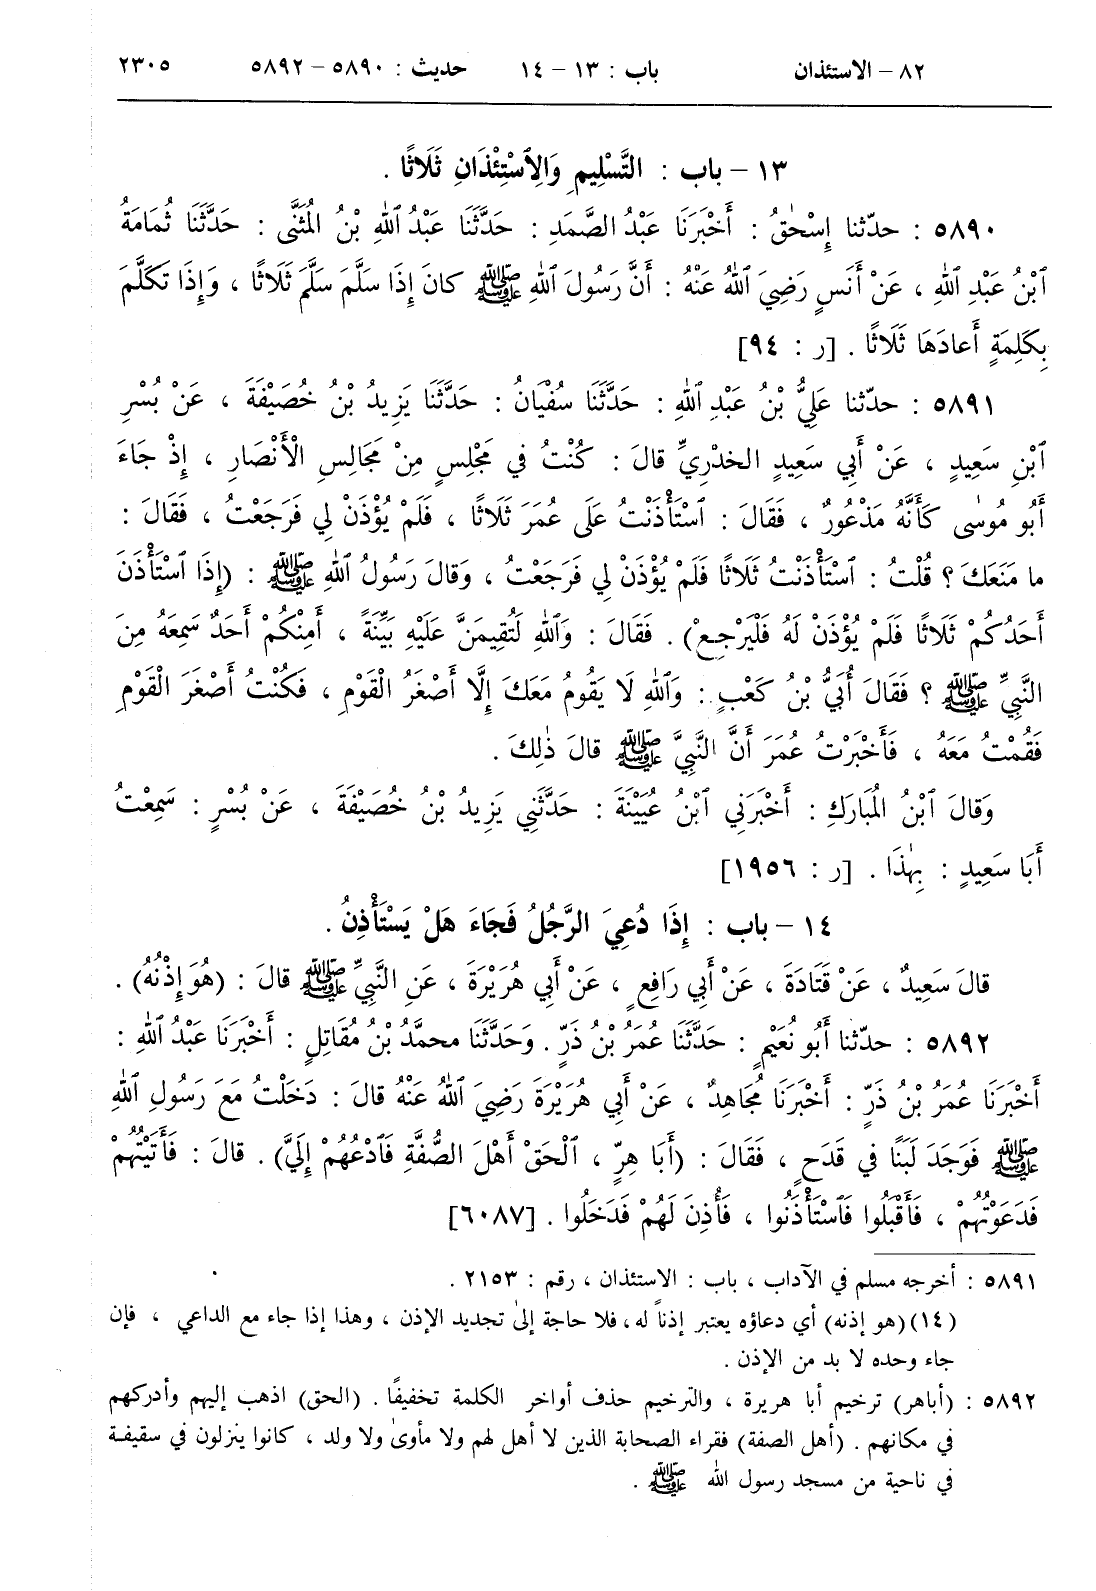 ٨٢ – الاستئذان باب : ١٣ – ١٤ حديث : ٥٨٩٠ – ٥٨٩٢ ٢٣٠٥
١٣ – باب : التَّسْلِيمِ وَٱلِٱسْتِئْذَانِ ثَلَاثًا .
٥٨٩٠ : حدّثنا إِسْحٰقُ : أَخْبَرَنَا عَبْدُ الصَّمَدِ : حَدَّثَنَا عَبْدُ ٱللهِ بْنُ المُثَنَّى : حَدَّثَنَا ثُمَامَةُ
ٱبْنُ عَبْدِ ٱللهِ ، عَنْ أَنَسٍ رَضِيَ ٱللهُ عَنْهُ : أَنَّ رَسُولَ ٱللهِ ﷺ كانَ إِذَا سَلَّمَ سَلَّمَ ثَلَاثًا ، وَإِذَا تَكَلَّمَ
بِكَلِمَةٍ أَعادَهَا ثَلَاثًا . [ر : ٩٤]
٥٨٩١ : حدّثنا عَلِيُّ بْنُ عَبْدِ ٱللهِ : حَدَّثَنَا سُفْيَانُ : حَدَّثَنَا يَزِيدُ بْنُ خُصَيْفَةَ ، عَنْ بُسْرِ
ٱبْنِ سَعِيدٍ ، عَنْ أَبِي سَعِيدٍ الخدْرِيِّ قالَ : كُنْتُ فِي مَجْلِسٍ مِنْ مَجَالِسِ الْأَنْصَارِ ، إِذْ جَاءَ
أَبُو مُوسٰى كَأَنَّهُ مَذْعُورٌ ، فَقَالَ : ٱسْتَأْذَنْتُ عَلَى عُمَرَ ثَلَاثًا ، فَلَمْ يُؤْذَنْ لِي فَرَجَعْتُ ، فَقَالَ :
ما مَنَعَكَ ؟ قُلْتُ : ٱسْتَأْذَنْتُ ثَلَاثًا فَلَمْ يُؤْذَنْ لِي فَرَجَعْتُ ، وَقالَ رَسُولُ ٱللهِ ﷺ : (إِذَا ٱسْتَأْذَنَ
أَحَدُكُمْ ثَلَاثًا فَلَمْ يُؤْذَنْ لَهُ فَلْيَرْجِعْ) . فَقَالَ : وَٱللهِ لَتُقِيمَنَّ عَلَيْهِ بَيِّنَةً ، أَمِنْكُمْ أَحَدٌ سَمِعَهُ مِنَ
النَّبِيِّ ﷺ ؟ فَقَالَ أُبَيُّ بْنُ كَعْبٍ : وَٱللهِ لَا يَقُومُ مَعَكَ إِلَّا أَصْغَرُ الْقَوْمِ ، فَكُنْتُ أَصْغَرَ الْقَوْمِ
فَقُمْتُ مَعَهُ ، فَأَخْبَرْتُ عُمَرَ أَنَّ النَّبِيَّ ﷺ قالَ ذٰلِكَ .
وَقالَ ٱبْنُ المُبَارَكِ : أَخْبَرَنِي ٱبْنُ عُيَيْنَةَ : حَدَّثَنِي يَزِيدُ بْنُ خُصَيْفَةَ ، عَنْ بُسْرٍ : سَمِعْتُ
أَبَا سَعِيدٍ : بِهٰذَا . [ر : ١٩٥٦]
١٤ – باب : إِذَا دُعِيَ الرَّجُلُ فَجَاءَ هَلْ يَسْتَأْذِنُ .
قالَ سَعِيدٌ ، عَنْ قَتَادَةَ ، عَنْ أَبِي رَافِعٍ ، عَنْ أَبِي هُرَيْرَةَ ، عَنِ النَّبِيِّ ﷺ قالَ : (هُوَ إِذْنُهُ) .
٥٨٩٢ : حدّثنا أَبُو نُعَيْمٍ : حَدَّثَنَا عُمَرُ بْنُ ذَرٍّ . وَحَدَّثَنَا محمَّدُ بْنُ مُقَاتِلٍ : أَخْبَرَنَا عَبْدُ ٱللهِ :
أَخْبَرَنَا عُمَرُ بْنُ ذَرٍّ : أَخْبَرَنَا مُجَاهِدٌ ، عَنْ أَبِي هُرَيْرَةَ رَضِيَ ٱللهُ عَنْهُ قالَ : دَخَلْتُ مَعَ رَسُولِ ٱللهِ
ﷺ فَوَجَدَ لَبَنًا فِي قَدَحٍ ، فَقَالَ : (أَبَا هِرٍّ ، ٱلْحَقْ أَهْلَ الصُّفَّةِ فَٱدْعُهُمْ إِلَيَّ) . قالَ : فَأَتَيْتُهُمْ
فَدَعَوْتُهُمْ ، فَأَقْبَلُوا فَٱسْتَأْذَنُوا ، فَأُذِنَ لَهُمْ فَدَخَلُوا . [٦٠٨٧]
٥٨٩١ : أخرجه مسلم في الآداب ، باب : الاستئذان ، رقم : ٢١٥٣ .
(١٤) (هو إذنه) أي دعاؤه يعتبر إذناً له، فلا حاجة إلىٰ تجديد الإذن ، وهذا إذا جاء مع الداعي ، فإن
جاء وحده لا بد من الإذن .
٥٨٩٢ : (أباهر) ترخيم أبا هريرة ، والترخيم حذف أواخر الكلمة تخفيفًا . (الحق) اذهب إليهم وأدركهم
في مكانهم . (أهل الصفة) فقراء الصحابة الذين لا أهل لهم ولا مأوىٰ ولا ولد ، كانوا ينزلون في سقيفة
في ناحية من مسجد رسول الله ﷺ .